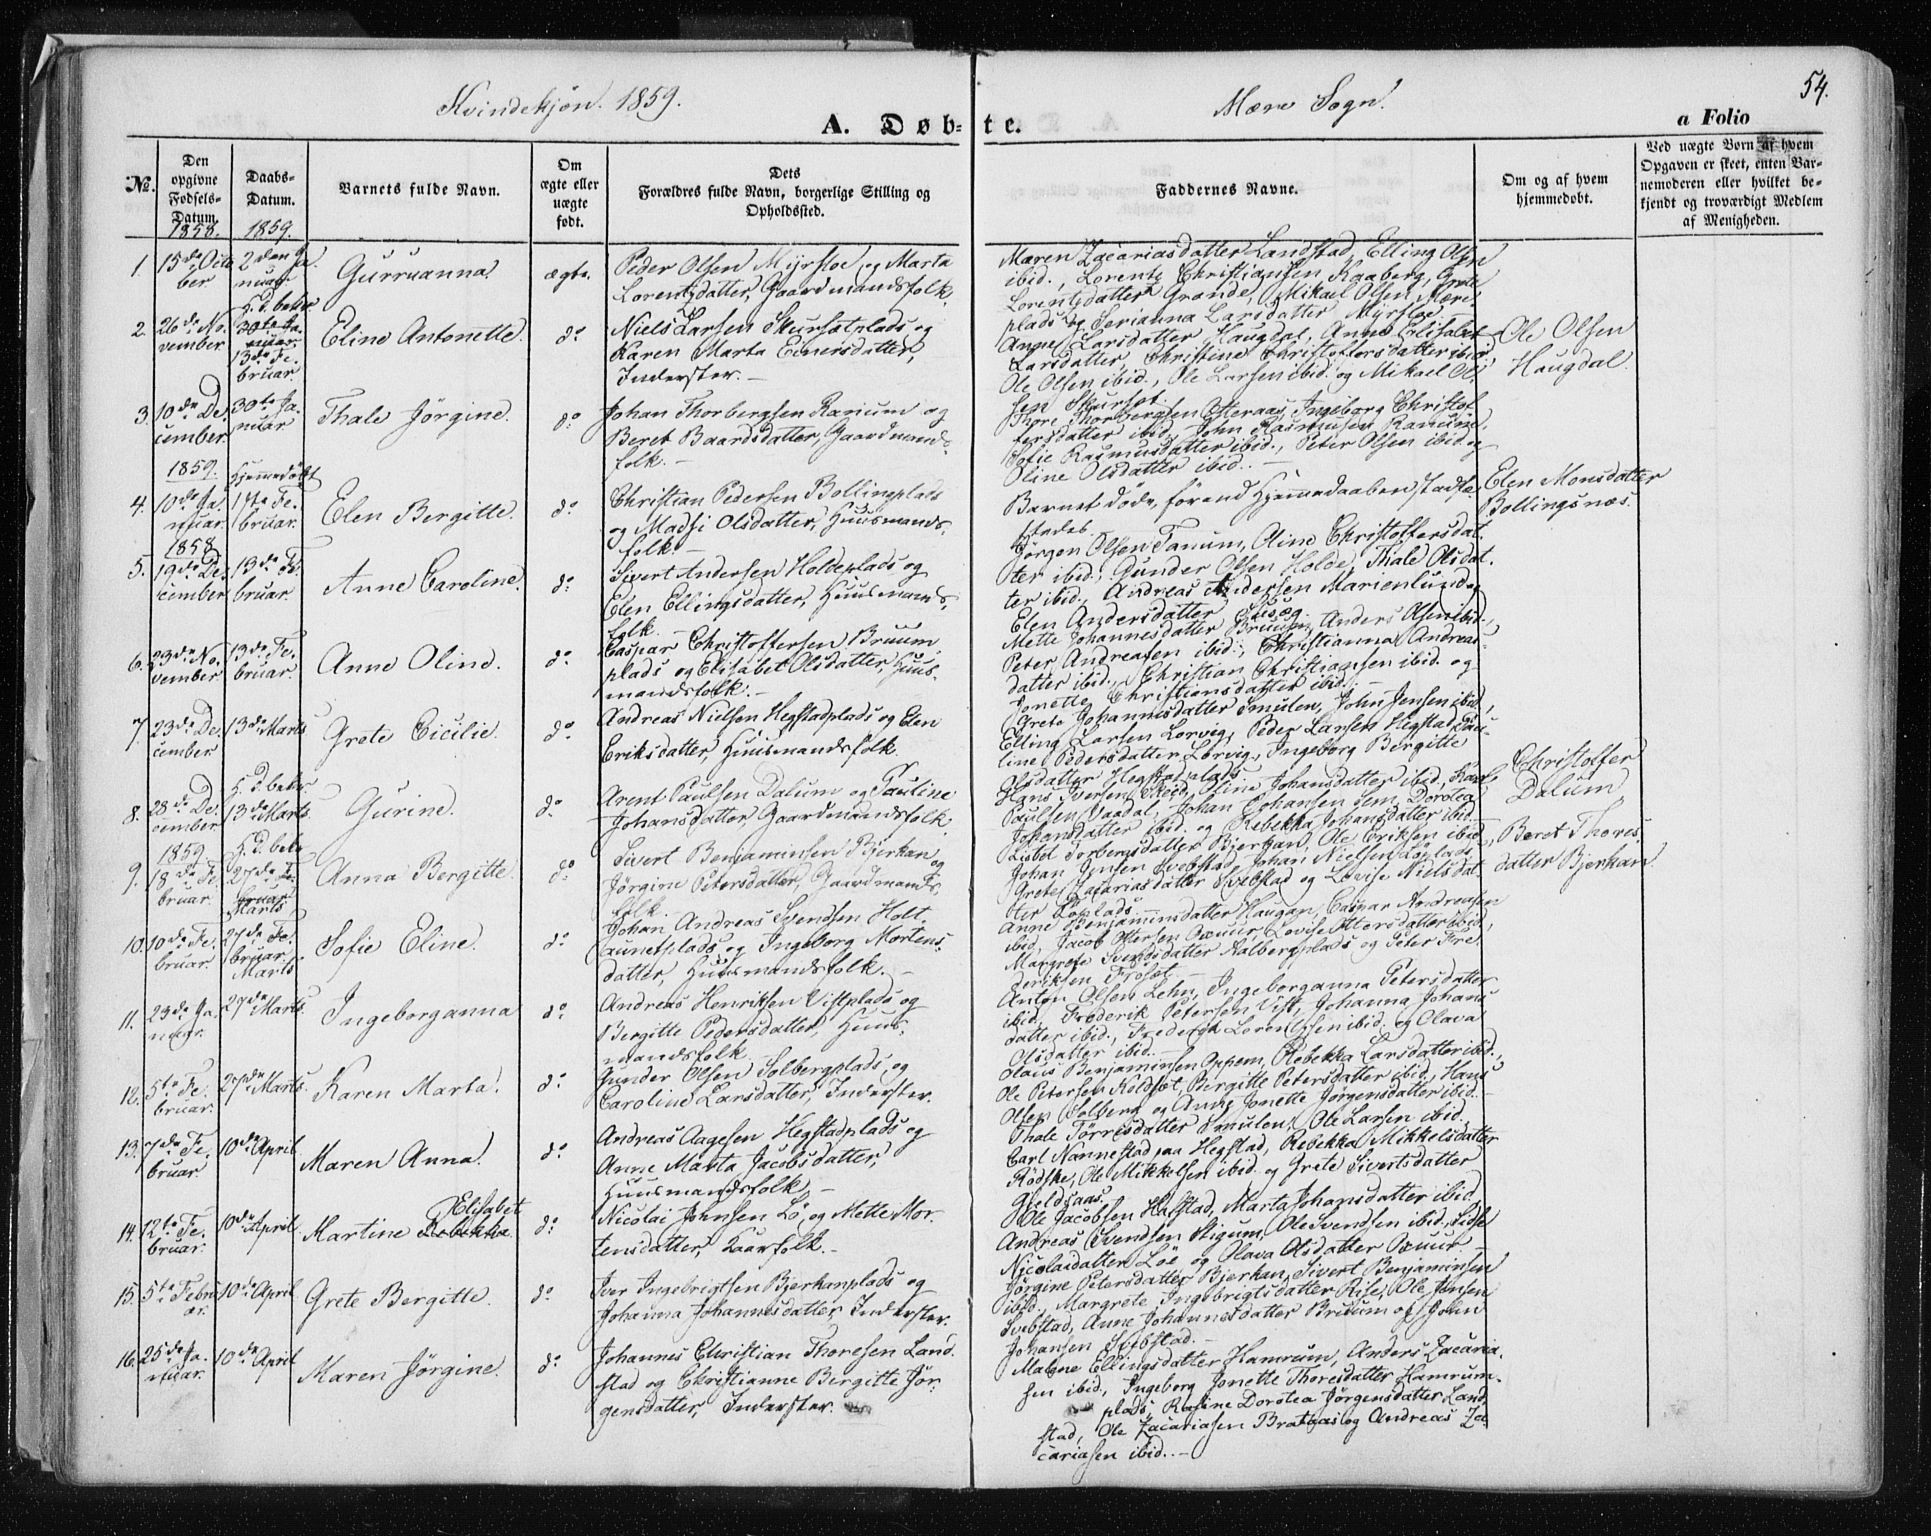 Kvindekjøn. 1859.
Mære Sogn.
54.
A. Døbte.
a Folio
№.
Den opgivne Fødsels-Datum.
1858.
Daabs-Datum.
1859.
Barnets fulde Navn.
Om ægte eller uægte født.
Dets Forældres fulde Navn, borgerlige Stilling og Opholdssted.
Faddernes Navne.
Om og af hvem hjemmedøbt.
Ved uægte Børn af hvem Opgaven er skeet, enten Barnemoderen eller hvilket bekjendt og troværdigt Medlem af Menigheden.
1.
15de Octo
ber
2den Ja.
nuar.
Gurruanna
ægte.
Peder Olsen Myrstoe, og Marta
Lorentsdatter, Gaardmandsfolk.
Maren Zacariasdatter Landstad, Elling Olsen
ibid., Lorents Christiansen Kaaberg, Grete
Lorentsdatter Grande, Mikael Olsen Mære
plads og Serianna Larsdatter Myrstoe.
2.
26de No.
vember
H. d. bekr.
30te Ja.
nuar.
13de Fe.
bruar.
Eline Antonette.
do
Niels Larsen Skursetplads og
Karen Marta Einersdatter,
Inderster. –
Anne Larsdatter Haugdal, Anne Elisabet
Larsdatter, Christine Christoffersdatter ibid.,
Ole Olsen ibid., Ole Larsen ibid. og Mikael Ol.
sen Skurset.
Ole Olsen
Haugdal.
3.
10de De.
cember
30te Ja.
nuar
Thale Jörgine.
do
Johan Thorbergsen Ranum og
Beret Baardsdatter, Gaardmands.
folk. –
Thore Thorbergsen Østeraas, Ingeborg Christof
fersdatter ibid. John Rasmusen Ranum,
Sofie Rasmusdatter ibid., Peter Olsen ibid og
Oline Olsdatter ibid. –
4.
1859.
10de Ja.
nuar.
Hjemmedøbt
1ste Fe.
bruar.
Elen Bergitte.
do
Christian Pedersen Bollingplads
og Madsi Olsdatter, Huusmands.
folk. –
Barnet døde, førend Hjemmedaaben stadfæ
stedes.
Elen Monsdatter
Bollingsnæs.
5.
1858
19de De.
cember
13de Fe.
bruar.
Anne Caroline.
do
Sivert Andersen Holdeplads og
Elen Ellingsdatter, Huusmands.
folk.
Jørgen Olsen Tanum, Oline Christoffersdat.
ter ibid., Gunder Olsen Holde, Thale Olsdat.
ter ibid., Andreas Andersen Marienlund og
Elen Andersdatter
6.
23de No.
vember
13de Fe.
bruar.
Anne Oline.
do
Caspar Christoffersen Bruum
plads og Elisabet Olsdatter, Huus.
mandsfolk. –
Mette Johannesdatter Anders Olsen ibid.,
Peter Andreasen ibid., Christianna Andreas
datter ibid., Christian Christiansen ibid. og
Jonette Christiansdatter ibid. –
7.
23de De.
cember.
13de Marts
Grete Cicilie.
do
Andreas Nielsen Hegstadplads og Elen
Eriksdatter, Huusmandsfolk
Grete Johannisdatter Smulen, John Jensen ibid,
Elling Larsen Lorvig, Peder Larsen Hegstad, Pau-
line Pedersdatter Lorvig, Ingeborg Bergitte
Olsdatter Hegstadplads.
8.
28de De.
cember
H. d. bekr.
13de Marts
Gurine.
do
Arent Paulsen Dalum og Pauline
Johansdatter, Gaardmandsfolk.
Hans Iversen Skeed, Stine Johansdatter ibid, Karl
Paulsen Vaadal, Johan Johansen Sem, Dorotea
Johansdatter ibid. og Rebekka Johansdatter ibid.
Christoffer
Dalum
9.
1859
18de Fe.
bruar.
H. d. bekr.
27de Fe.
bruar
Marts
Anna Bergitte.
do
Sivert Benjaminsen Bjerkan og
Jørgine Petersdatter, Gaardmands.
folk.
Lisbet Torbergsdatter Bjerkan, Ole Eriksen ibid.
Johan Jensen Svebstad, Johan Nielsen Löplads,
Grete Zacariasdatter Svebstad og Lovise Nielsdat.
ter Löplads.
Beret Thores.
datter Bjerkan
10.
10de Fe.
bruar.
27de Fe.
bruar
Marts
Sofie Eline.
do
Johan Andreas Svendsen Holt.
aunetplads og Ingeborg Mortens.
datter, Huusmandsfolk. –
Anne Benjaminsdatter Haugan, Caspar Andreasen
ibid, Jacob Ottersen Oxuur, Lovise Ottersdatter ibid,
Margrete Svendsdatter Aalbergplads og Peter Fre.
deriksen Froset. –
11.
23de Ja.
nuar.
27de Marts.
Ingeborganna
do
Andreas Henriksen Vistplads og
Bergitte Pedersdatter, Huus.
mandsfolk
Anton Olsen Lehn, Ingeborganna Petersdatter
ibid, Frederik Petersen Vist, Johanna Johans
datter ibid., Frederik Lorentsen ibid. og Olava
Olsdatter ibid. –
12.
5te Fe.
bruar.
27de Marts.
Karen Marta.
do
Gunder Olsen Solbergplads og
Caroline Larsdatter, Inderster.
Olaus Benjaminsen Oppem, Rebekka Larsdatter ibid.,
Ole Petersen Koldset, Bergitte Petersdatter ibid., Hans
Olsen Solberg og Anne Jonette Jørgensdatter ibid. –
13.
7de Fe.
bruar.
10de April
Maren Anna.
do
Andreas Aagesen Hegstadplads og
Anne Marta Jacobsdatter,
Huusmandsfolk –
Thale Torresdatter Smulen, Ole Larsen ibid.
Carl Nannestad paa Hegstad, Rebekka Mikkelsdatter
Rødske, Ole Mikkelsen ibid. og Grete Sivertsdatter
Gjeldsaas.
14.
12te Fe.
bruar.
10de April
Elisabet
Martine Rebekka
do
Nicolai Johnsen Lö, og Mette Mor.
tensdatter, Kaarfolk. –
Ole Jacobsen Hafstad, Marta Johansdatter ibid
Andreas Svendsen Stigum, Ole Svendsen ibid, Sidse
Nicolaidatter Löe og Olava Olsdatter Oxuur. –
15.
5te Febru
ar.
10de April
Grete Bergitte.
do
Iver Ingebrigtsen Bjerkanplads og
Johanna Johannesdatter, Inderster.
Jørgine Petersdatter Bjerkan, Sivert Benjaminsen
ibid., Margrete Ingebrigtsdatter Rise, Ole Jensen
Svebstad, Anne Johannesdatter Bruum og John
Johansen Svebstad. –
16.
25de Ja.
nuar.
10de April
Maren Jörgine.
do
Johannes Christian Thoresen Land.
stad og Christianne Bergitte Jör.
gensdatter, Inderster.
Malene Ellingsdatter Hamrum, Anders Zacaria.
sen ibid, Ingeborg Jonette Thoresdatter Hamrum.
plads, Rasine Dorotea Jørgensdatter Land.
stad, Ole Zacariasen Brataas og Andreas Za
cariasen ibid. –